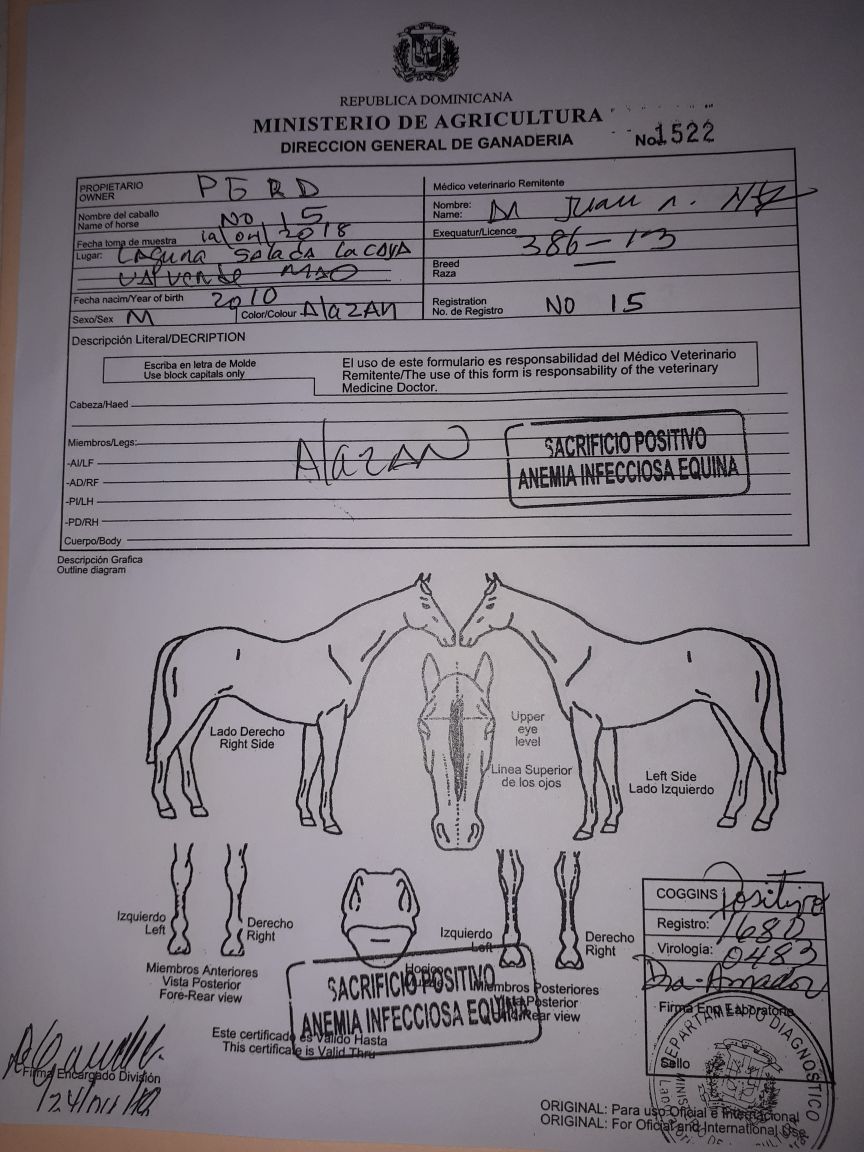 REPUBLICA DOMINICANA
MINISTERIO DE AGRICULTURA
DIRECCION GENERAL DE GANADERIA
No. 1522
PROPIETARIO
OWNER
PERD
Nombre del caballo
Name of horse
NO 15
Fecha toma de muestra /04/2018
Lugar: Laguna Salada La Caya
Valverde Mao
Fecha nacim/Year of birth 2010
Sexo/Sex M
Color/Colour Alazan
Médico veterinario Remitente
Nombre:
Name:
Juan
Exequatur/Licence
386-13
Breed
Raza
Registration
No. de Registro
NO 15
Descripción Literal/DECRIPTION
Escriba en letra de Molde
Use block capitals only
El uso de este formulario es responsabilidad del Médico Veterinario
Remitente/The use of this form is responsability of the veterinary
Medicine Doctor.
Cabeza/Haed
Miembros/Legs:
Alazan
-AI/LF
-AD/RF
-PI/LH
-PD/RH
Cuerpo/Body
SACRIFICIO POSITIVO
ANEMIA INFECCIOSA EQUINA
Descripción Grafica
Outline diagram
Lado Derecho
Right Side
Upper
eye
level
Linea Superior
de los ojos
Left Side
Lado Izquierdo
Izquierdo
Left
Derecho
Right
Miembros Anteriores
Vista Posterior
Fore-Rear view
Hocico
Izquierdo
Left
Derecho
Right
Miembros Posteriores
Vista Posterior
Rear view
SACRIFICIO POSITIVO
ANEMIA INFECCIOSA EQUINA
Este certificado es Valido Hasta
This certificate is Valid Thru
COGGINS Positivo
Registro: 1680
Virología: 0483
Dra. Amador
Firma Enc Laboratorio
Sello
DEPARTAMENTO DIAGNOSTICO
Firma Encargado División
ORIGINAL: Para uso Oficial e Internacional
ORIGINAL: For Oficial and International Use